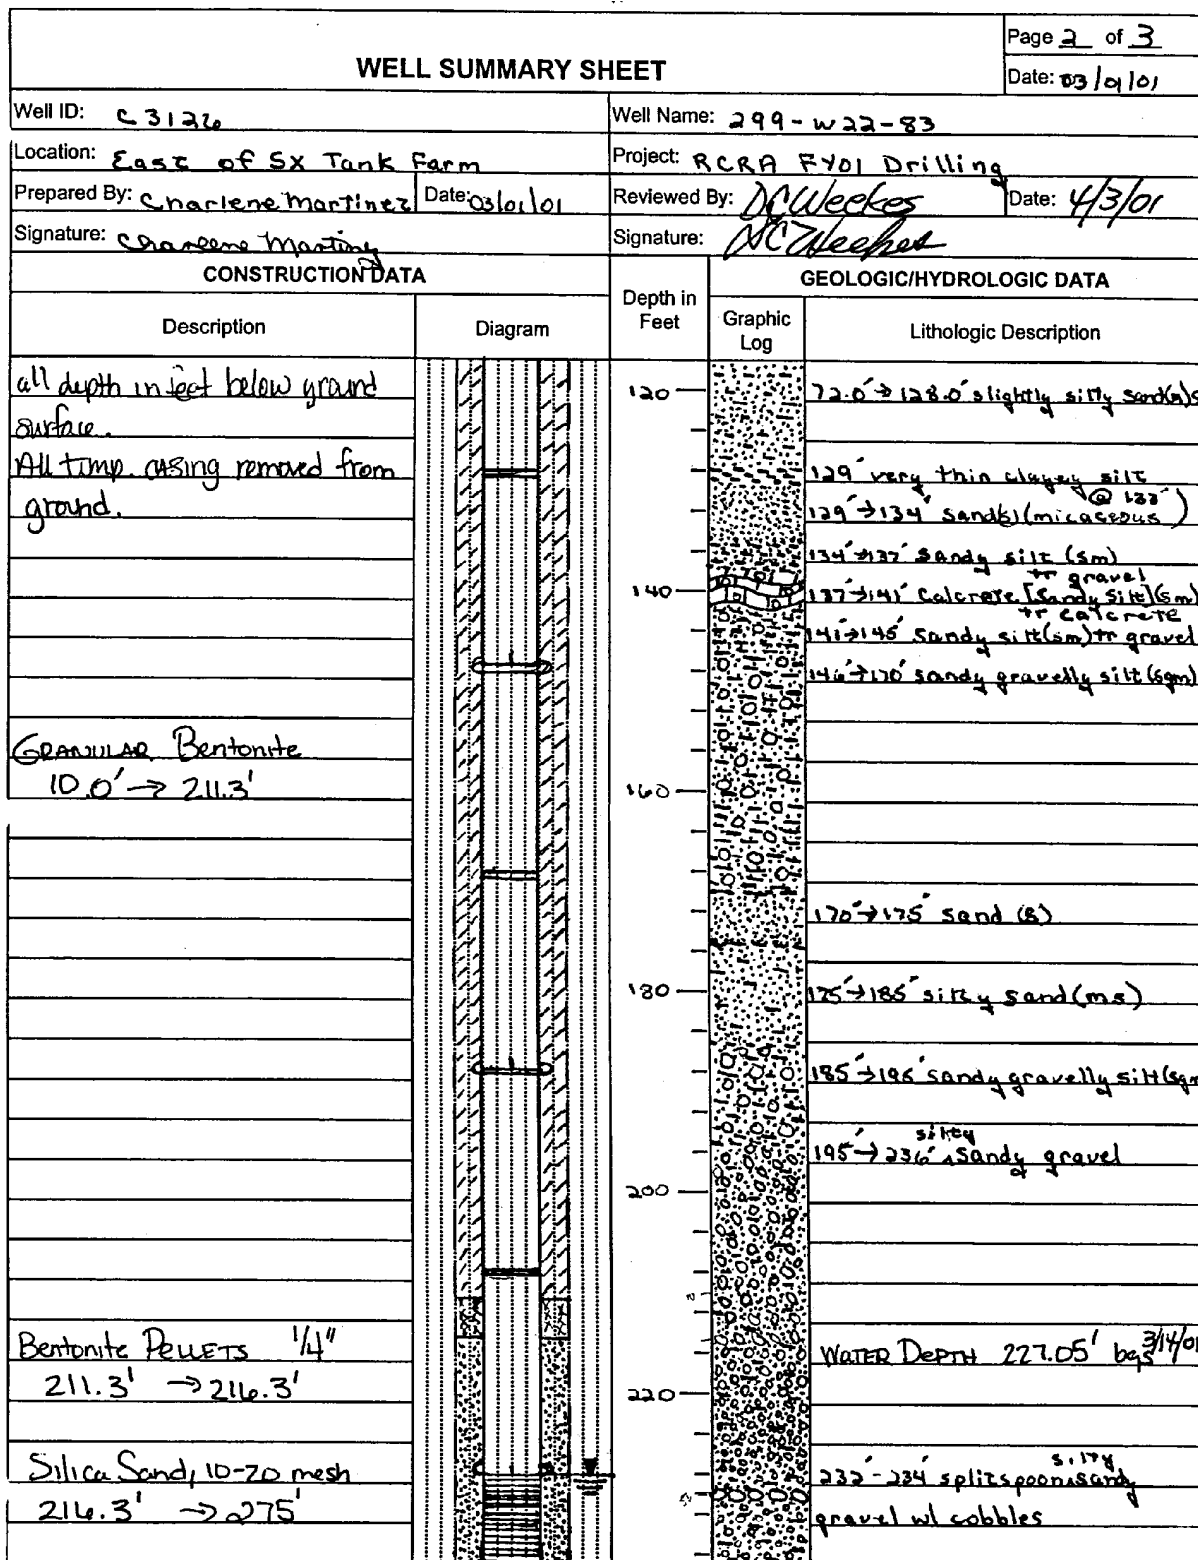 Page 2 of 3
WELL SUMMARY SHEET
Date: 03/01/01
Well ID: C3126
Well Name: 299-W22-83
Location: East of SX Tank Farm
Project: RCRA FY01 Drilling
Prepared By: Charlene Martinez Date: 03/01/01
Reviewed By: DC Weekes Date: 4/3/01
Signature: Charlene Martinez
Signature: DC Weekes
CONSTRUCTION DATA
GEOLOGIC/HYDROLOGIC DATA
Description
Diagram
Depth in Feet
Graphic Log
Lithologic Description
all depth in feet below ground
surface.
All temp. casing removed from
ground.
GRANULAR Bentonite
10.0' → 211.3'
Bentonite PELLETS 1/4"
211.3' → 216.3'
Silica Sand, 10-20 mesh
216.3' → 275'
120
140
160
180
200
220
72.0' → 128.0' slightly silty sand(m)s
129' very thin clayey silt
@ 133'
129' → 134' sand(s) (micaceous)
134' → 137' sandy silt (sm)
tr gravel
137' → 141' Calcrete [Sandy Silt] (sm)
tr calcrete
141' → 145' sandy silt (sm) tr gravel
146' → 170' sandy gravelly silt (sgm)
170' → 175' sand (s)
175' → 185' silty sand (ms)
185' → 195' sandy gravelly silt (sgm
silty
195' → 236' sandy gravel
WATER DEPTH 227.05' bgs 3/14/01
silty
232' - 234' splitspoon sandy
gravel w/ cobbles